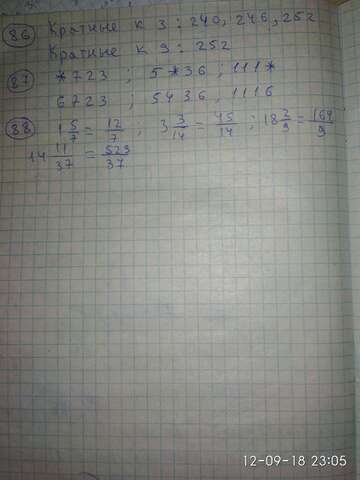 86 Кратные к 3 : 240, 246, 252
Кратные к 9 : 252
87 *723 ; 5*36 ; 111*
6723 ; 5436 ; 1116
88 1 5/7 = 12/7 ; 3 3/14 = 45/14 ; 18 2/9 = 164/9
14 11/37 = 529/37
12-09-18 23:05